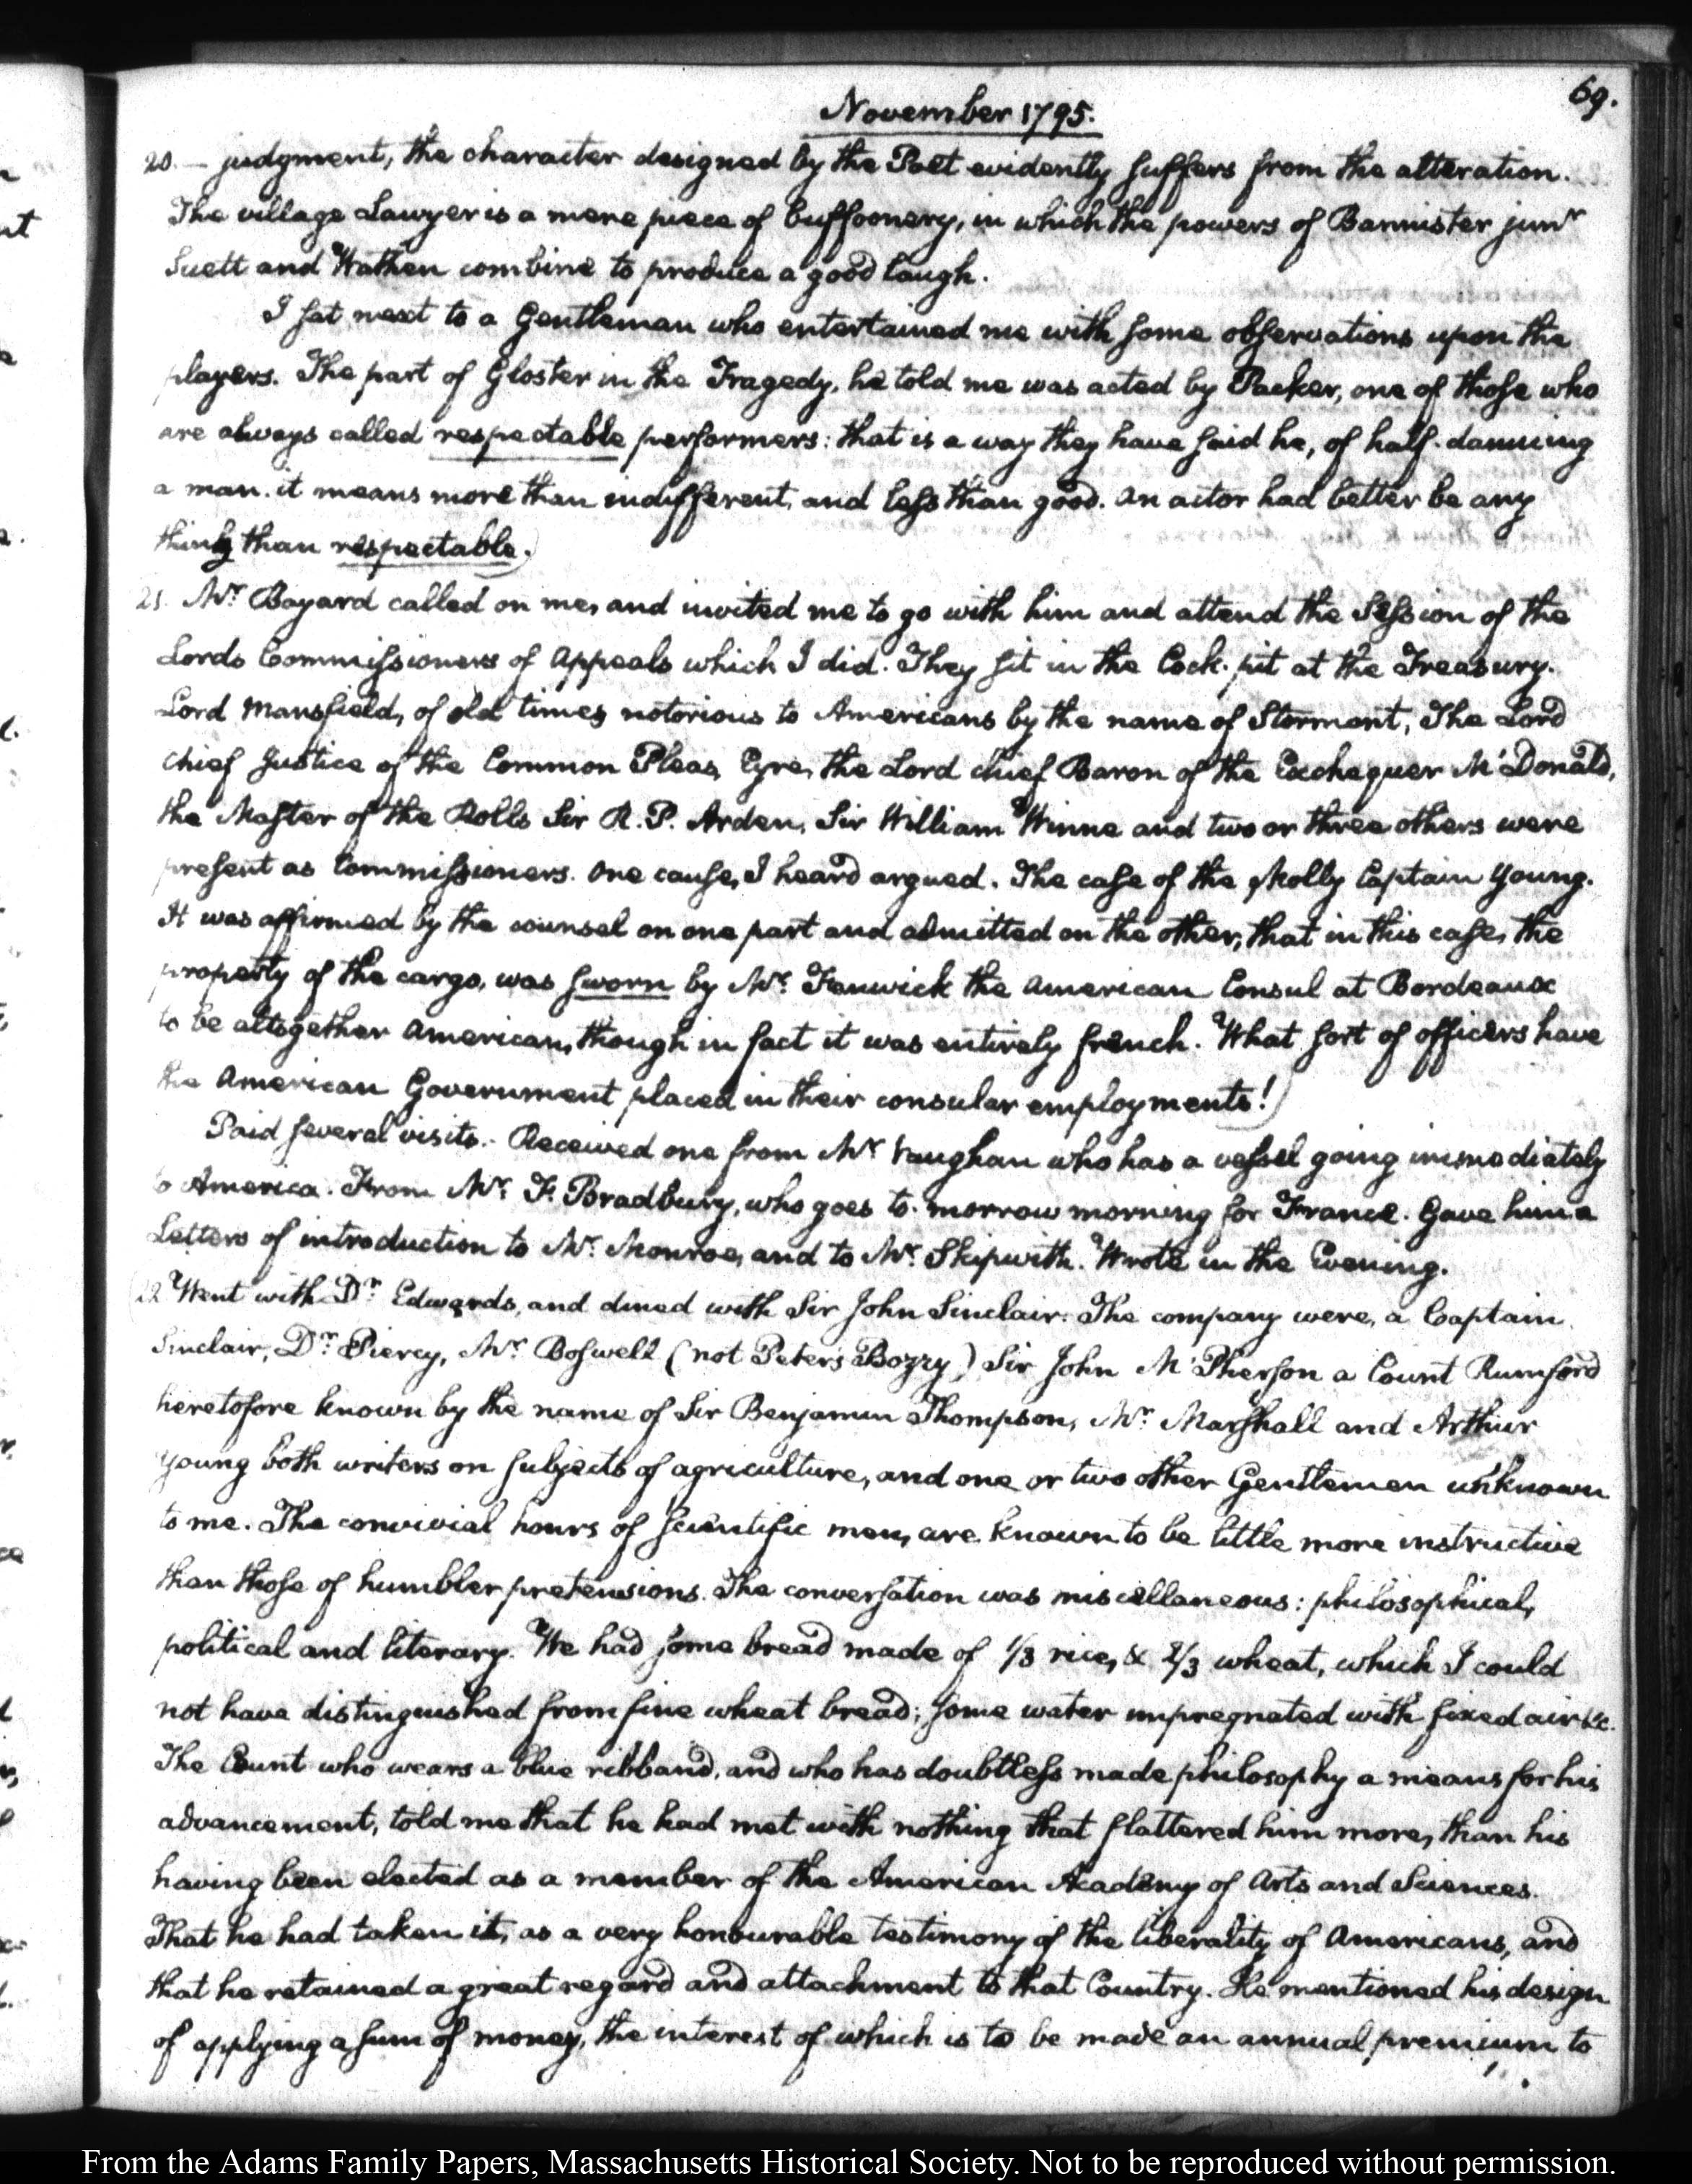 69.
November 1795.
20. — judgment, the character designed by the Poet evidently suffers from the alteration.
The village Lawyer is a mere piece of buffoonery, in which the powers of Bannister junr
Suett and Wathen combine to produce a good laugh.
I sat next to a Gentleman who entertained me with some observations upon the
players. The part of Gloster in the Tragedy, he told me was acted by Packer, one of those who
are always called respectable performers: that is a way they have said he, of half-damning
a man. it means more than indifferent, and less than good. An actor had better be any
thing than respectable.)
21. Mr. Bayard called on me, and invited me to go with him and attend the Session of the
Lords Commissioners of Appeals which I did. They sit in the Cock-pit at the Treasury.
Lord Mansfield, of old times notorious to Americans by the name of Stormont, The Lord
Chief Justice of the Common Pleas, Eyre, the Lord chief Baron of the Exchequer McDonald,
the Master of the Rolls Sir R. P. Arden, Sir William Winne and two or three others were
present as Commissioners. One cause, I heard argued. The case of the Molly Captain Young.
It was affirmed by the counsel on one part and admitted on the other, that in this case, the
property of the cargo, was sworn by Mr. Fenwick the American Consul at Bordeaux
to be altogether American, though in fact it was entirely french. What sort of officers have
the American Government placed in their consular employments!)
Paid several visits. Received one from Mr Vaughan who has a vessel going immediately
to America. From Mr. F. Bradbury, who goes to-morrow morning for France. Gave him a
Letters of introduction to Mr. Monroe, and to Mr. Skipwith. Wrote in the Evening.
(22 Went with Dr. Edwards, and dined with Sir John Sinclair. The company were, a Captain
Sinclair, Dr. Piercy, Mr. Boswell (not Peter's Bozzy) Sir John McPherson a Count Rumford
heretofore known by the name of Sir Benjamin Thompson, Mr. Marshall and Arthur
Young both writers on subjects of agriculture, and one or two other Gentlemen unknown
to me. The convivial hours of scientific men, are known to be little more instructive
than those of humbler pretensions. The conversation was miscellaneous: philosophical,
political and literary. We had some bread made of 1/3 rice, & 2/3 wheat, which I could
not have distinguished from fine wheat bread; some water impregnated with fixed air &c.
The Count who wears a blue ribband, and who has doubtless made philosophy a means for his
advancement, told me that he had met with nothing that flattered him more, than his
having been elected as a member of the American Academy of Arts and Sciences.
That he had taken it, as a very honourable testimony of the liberality of Americans, and
that he retained a great regard and attachment to that Country. He mentioned his design
of applying a sum of money, the interest of which is to be made an annual premium to
From the Adams Family Papers, Massachusetts Historical Society. Not to be reproduced without permission.